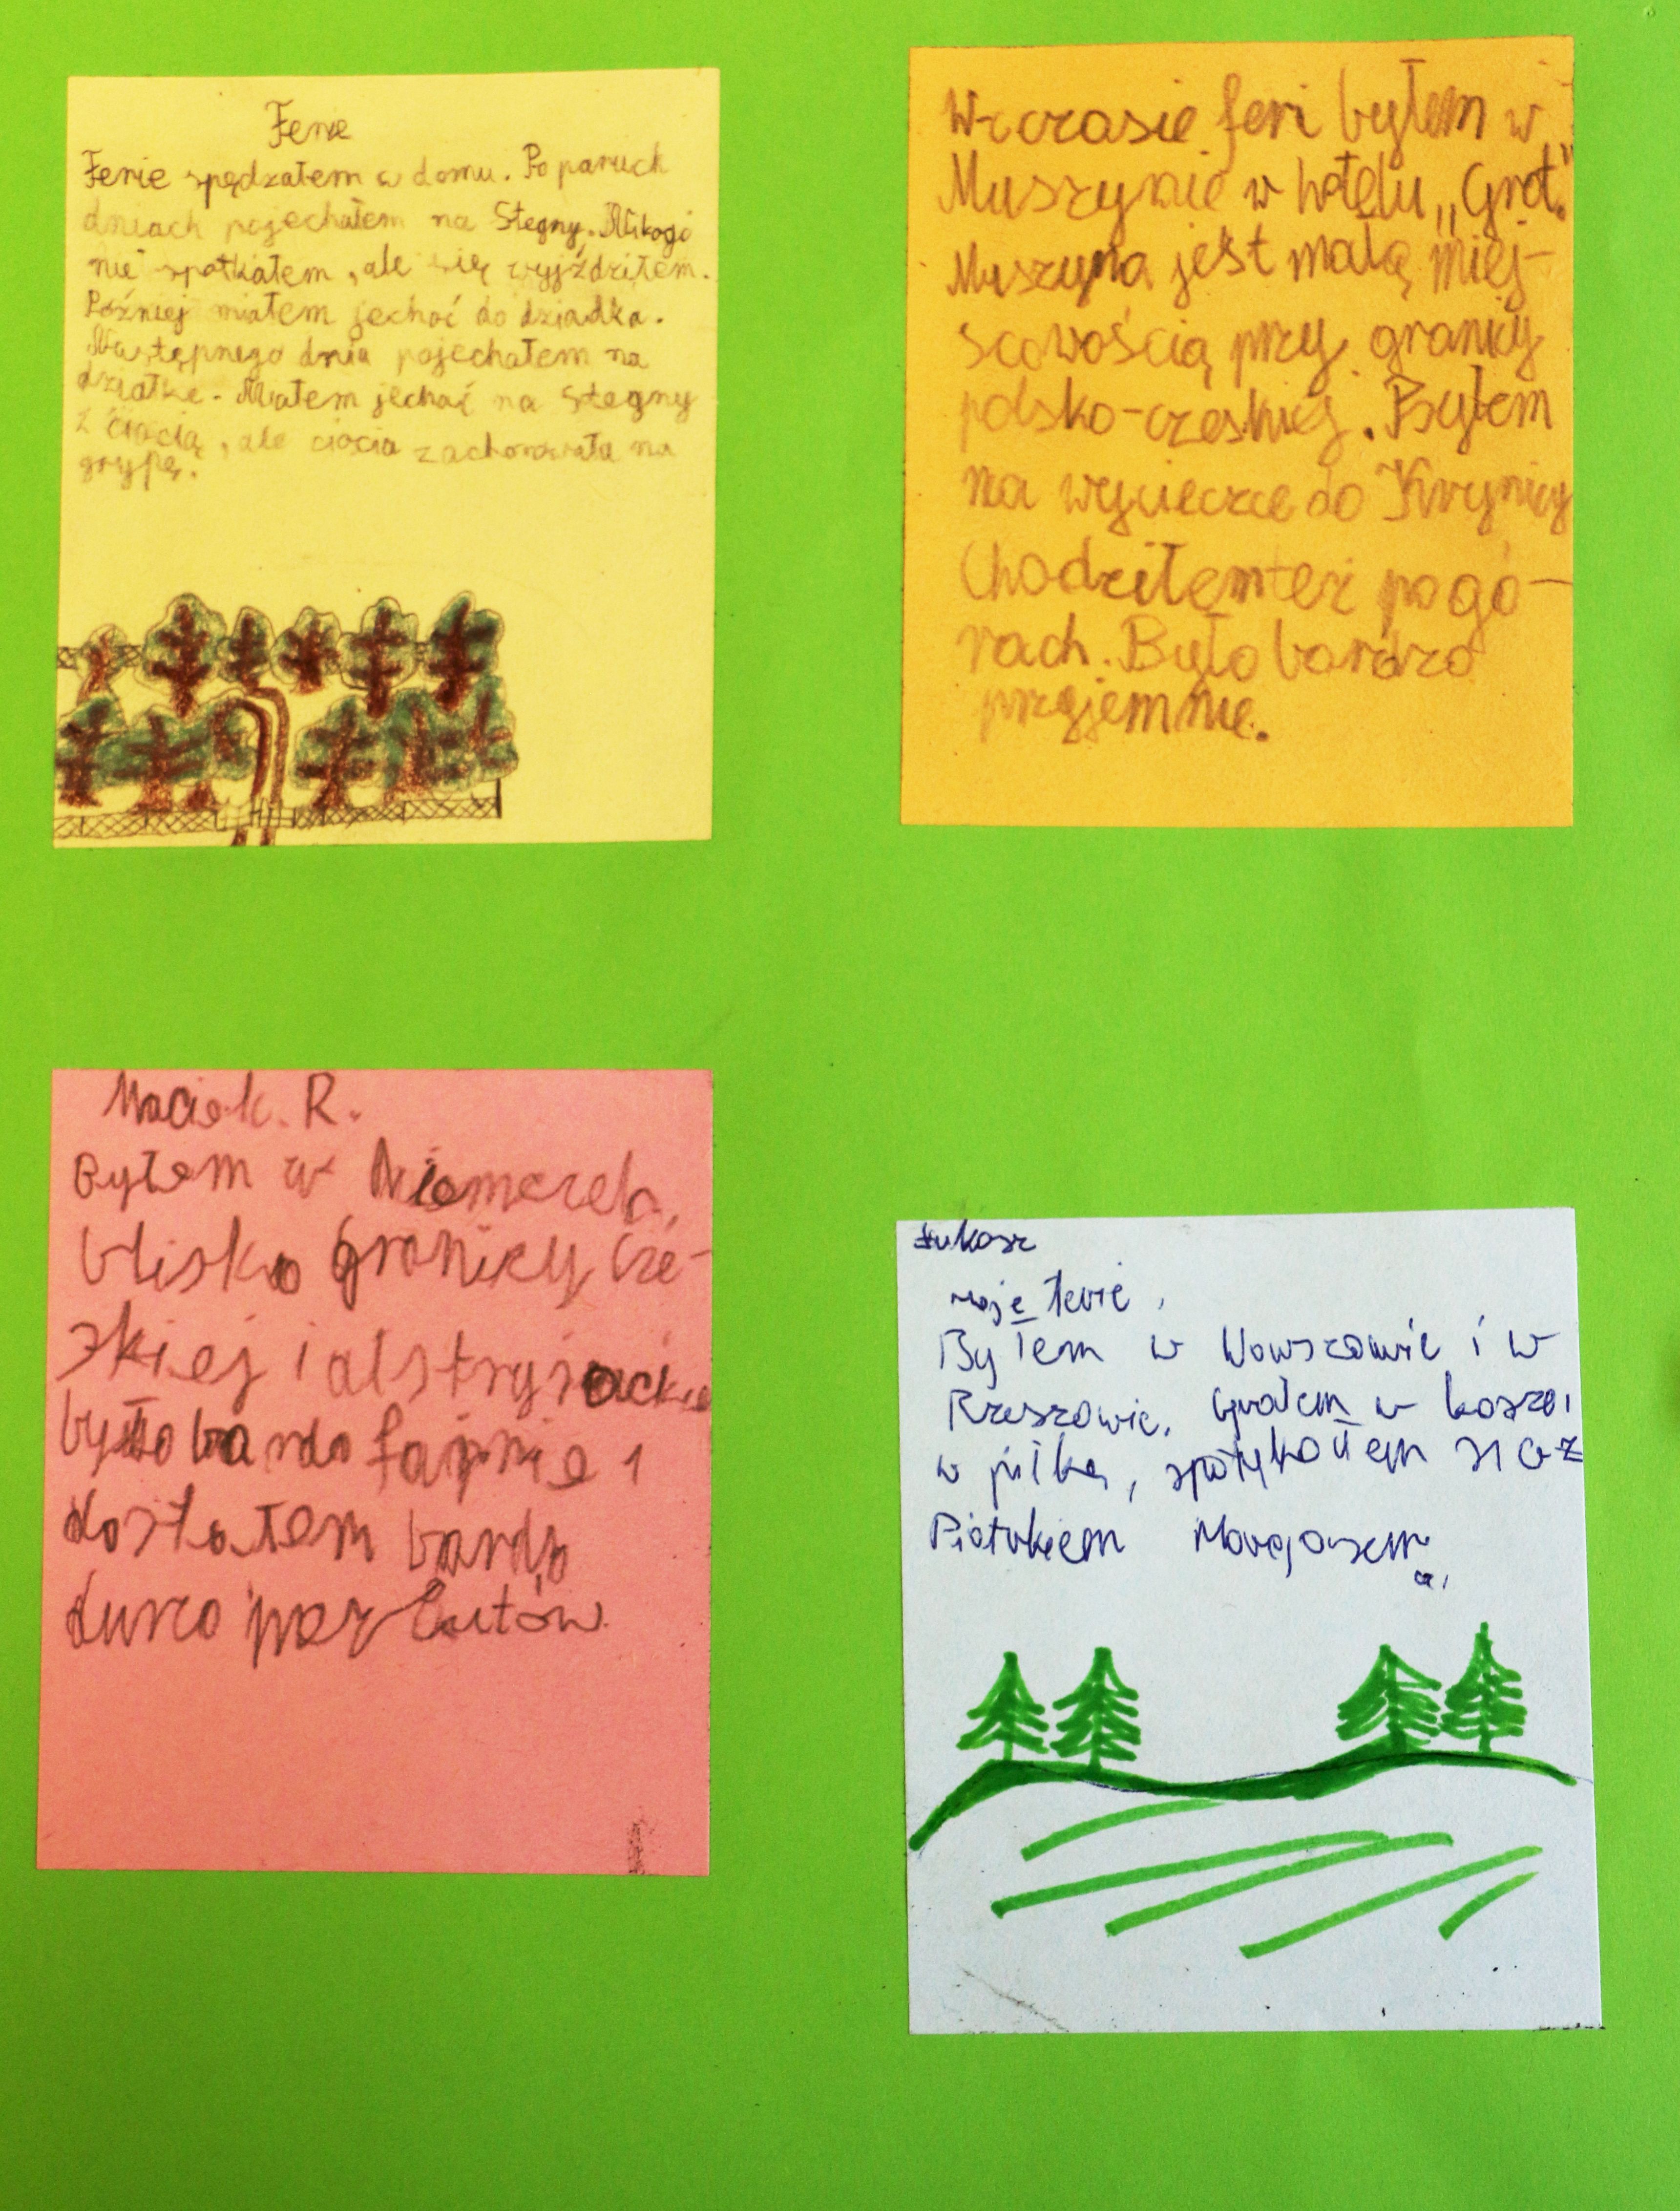 Ferie
Ferie spędzałem w domu. Po paruch
dniach pojechałem na Stegny. Nikogo
nie spotkałem, ale się wyjździłem.
Później miałem jechać do dziadka.
Następnego dnia pojechałem na
działkę. Miałem jechać na Stegny
z ciocią, ale ciocia zachorowała na
grypę.
W czasie feri byłem w
Muszynie w hotelu „Grot."
Muszyna jest małą miej-
scowością przy granicy
polsko-czeskiej. Byłem
na wycieczce do Krynicy
Chodziłem też po gó-
rach. Było bardzo
przyjemnie.
Maciek. R.
Byłem w Niemczech,
blisko granicy Cze-
skiej i alstryjackie
było bardo fajnie i
dostałem bardo
dużo
Łukasz
moje ferie.
Byłem w Warszawie i w
Rzeszowie. Grałem w kosza i
w piłkę, spotykałem się z
Piotrkiem